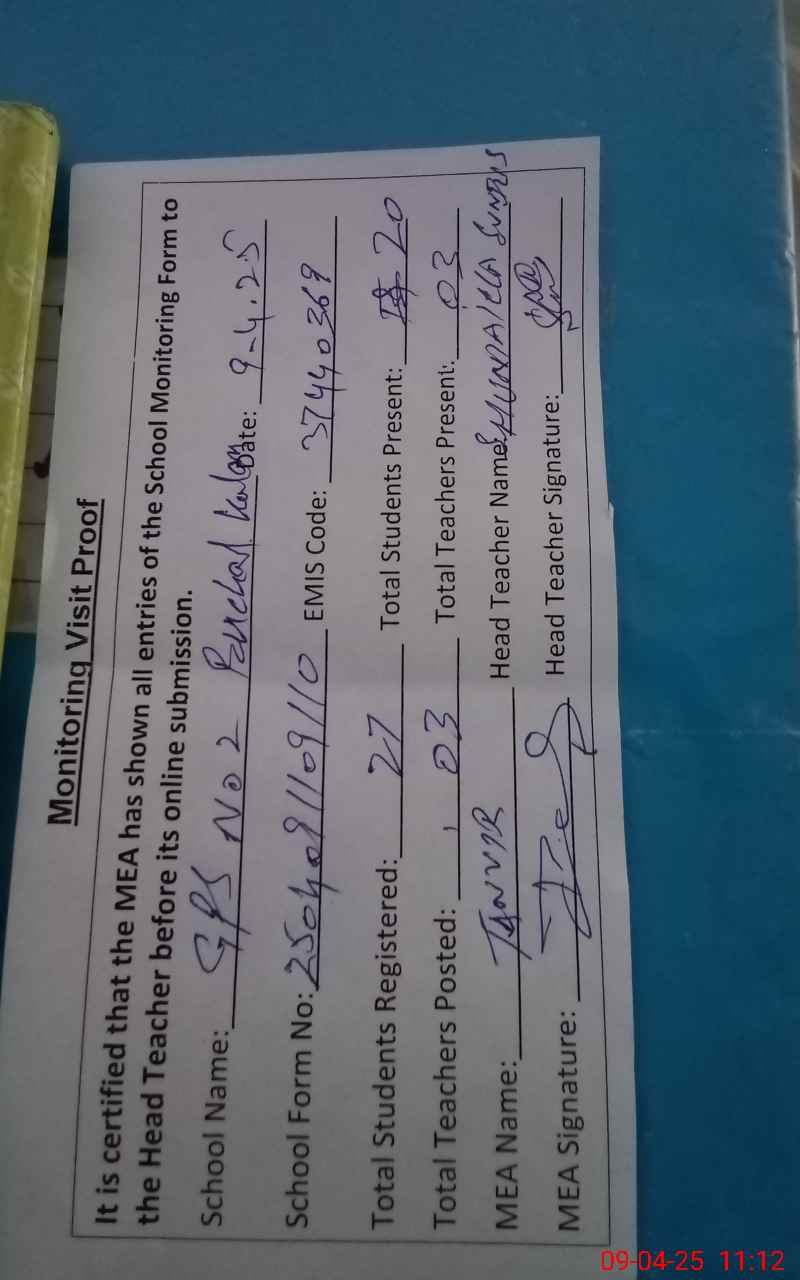 Monitoring Visit Proof
It is certified that the MEA has shown all entries of the School Monitoring Form to
the Head Teacher before its online submission.
School Name: GPS No 2 Date: 9-4.25
School Form No: EMIS Code: 37440369
Total Students Registered: 27 Total Students Present: 20
Total Teachers Posted: 03 Total Teachers Present: 03
MEA Name: TANVIR Head Teacher Name:
MEA Signature: Head Teacher Signature:
09-04-25 11:12